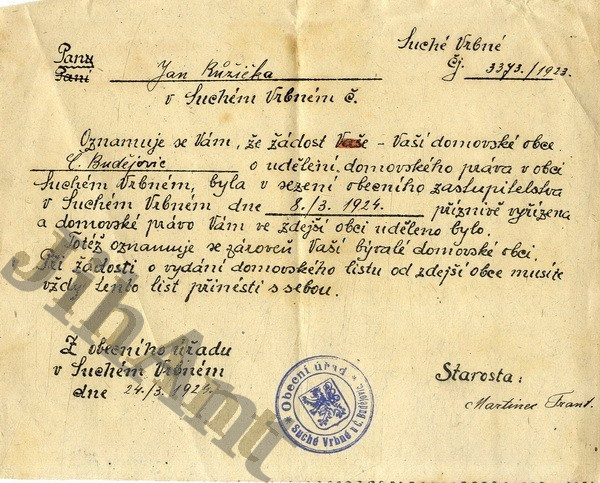 Suché Vrbné
Panu
Paní
Jan Růžička
Čj. 3373/1923.
v Suchém Vrbném č.
Oznamuje se Vám, že žádost Vaše - Vaší domovské obce
Č. Budějovic o udělení domovského práva v obci
Suchém Vrbném, byla v sezení obecního zastupitelstva
v Suchém Vrbném dne 8./3. 1924. příznivě vyřízena
a domovské právo Vám ve zdejší obci uděleno bylo.
Totéž oznamuje se zároveň Vaší bývalé domovské obci.
Při žádosti o vydání domovského listu od zdejší obce musíte
vždy tento list přinésti s sebou.
Z obecního úřadu
v Suchém Vrbném
dne 24./3. 1924.
Obecní úřad
Suché Vrbné u Č. Budějovic
Starosta:
Martinec Frant.
JihAmt